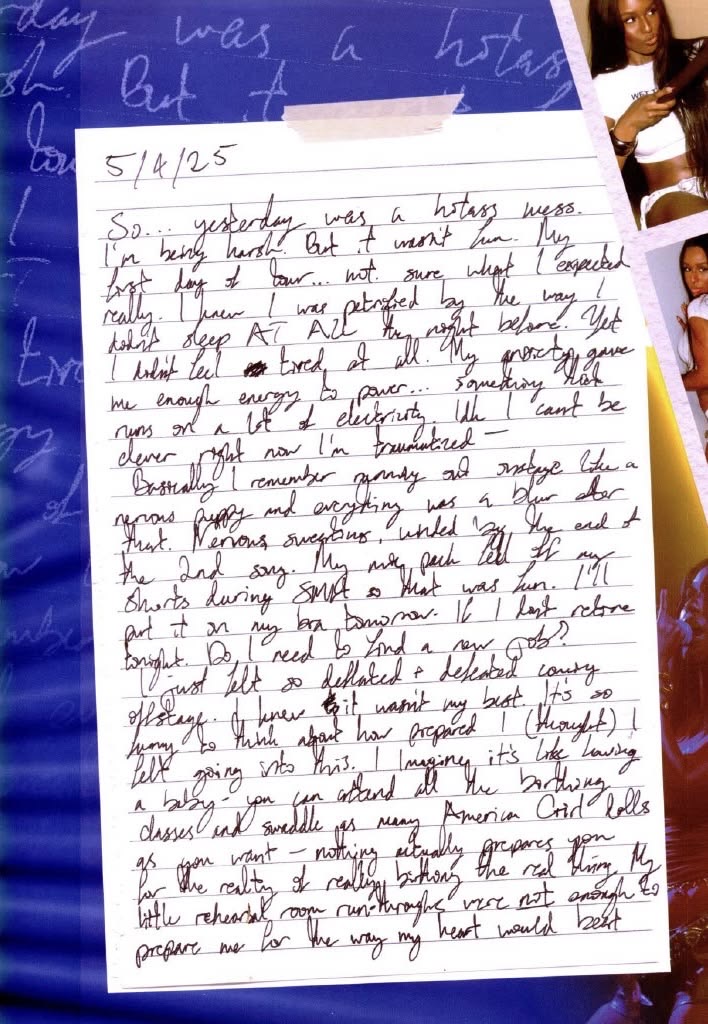 day was a hotass
sh. But it
5/4/25
So... yesterday was a hotass mess.
I'm being harsh. But it wasn't fun. My
first day of tour... not sure what I expected
really. I knew I was petrified by the way I
didn't sleep AT ALL the night before. Yet
I didn't feel tired at all. My anxiety gave
me enough energy to power... something that
runs on a lot of electricity. Idk I can't be
clever right now I'm traumatized —
Basically I remember running out onstage like a
nervous puppy and everything was a blur after
that. Nervous, sweating, winded by the end of
the 2nd song. My mic pack fell off my
shorts during so that was fun. I'll
put it on my bra tomorrow. If I don't retire
tonight. Do I need to find a new job?
I just felt so deflated + defeated coming
offstage. I knew it wasn't my best. It's so
funny to think about how prepared I (thought) I
felt going into this. I imagine it's like having
a baby - you can attend all the birthing
classes and swaddle as many American Girl dolls
as you want — nothing actually prepares you
for the reality of really birthing the real thing. My
little rehearsal room run-throughs were not enough to
prepare me for the way my heart would beat